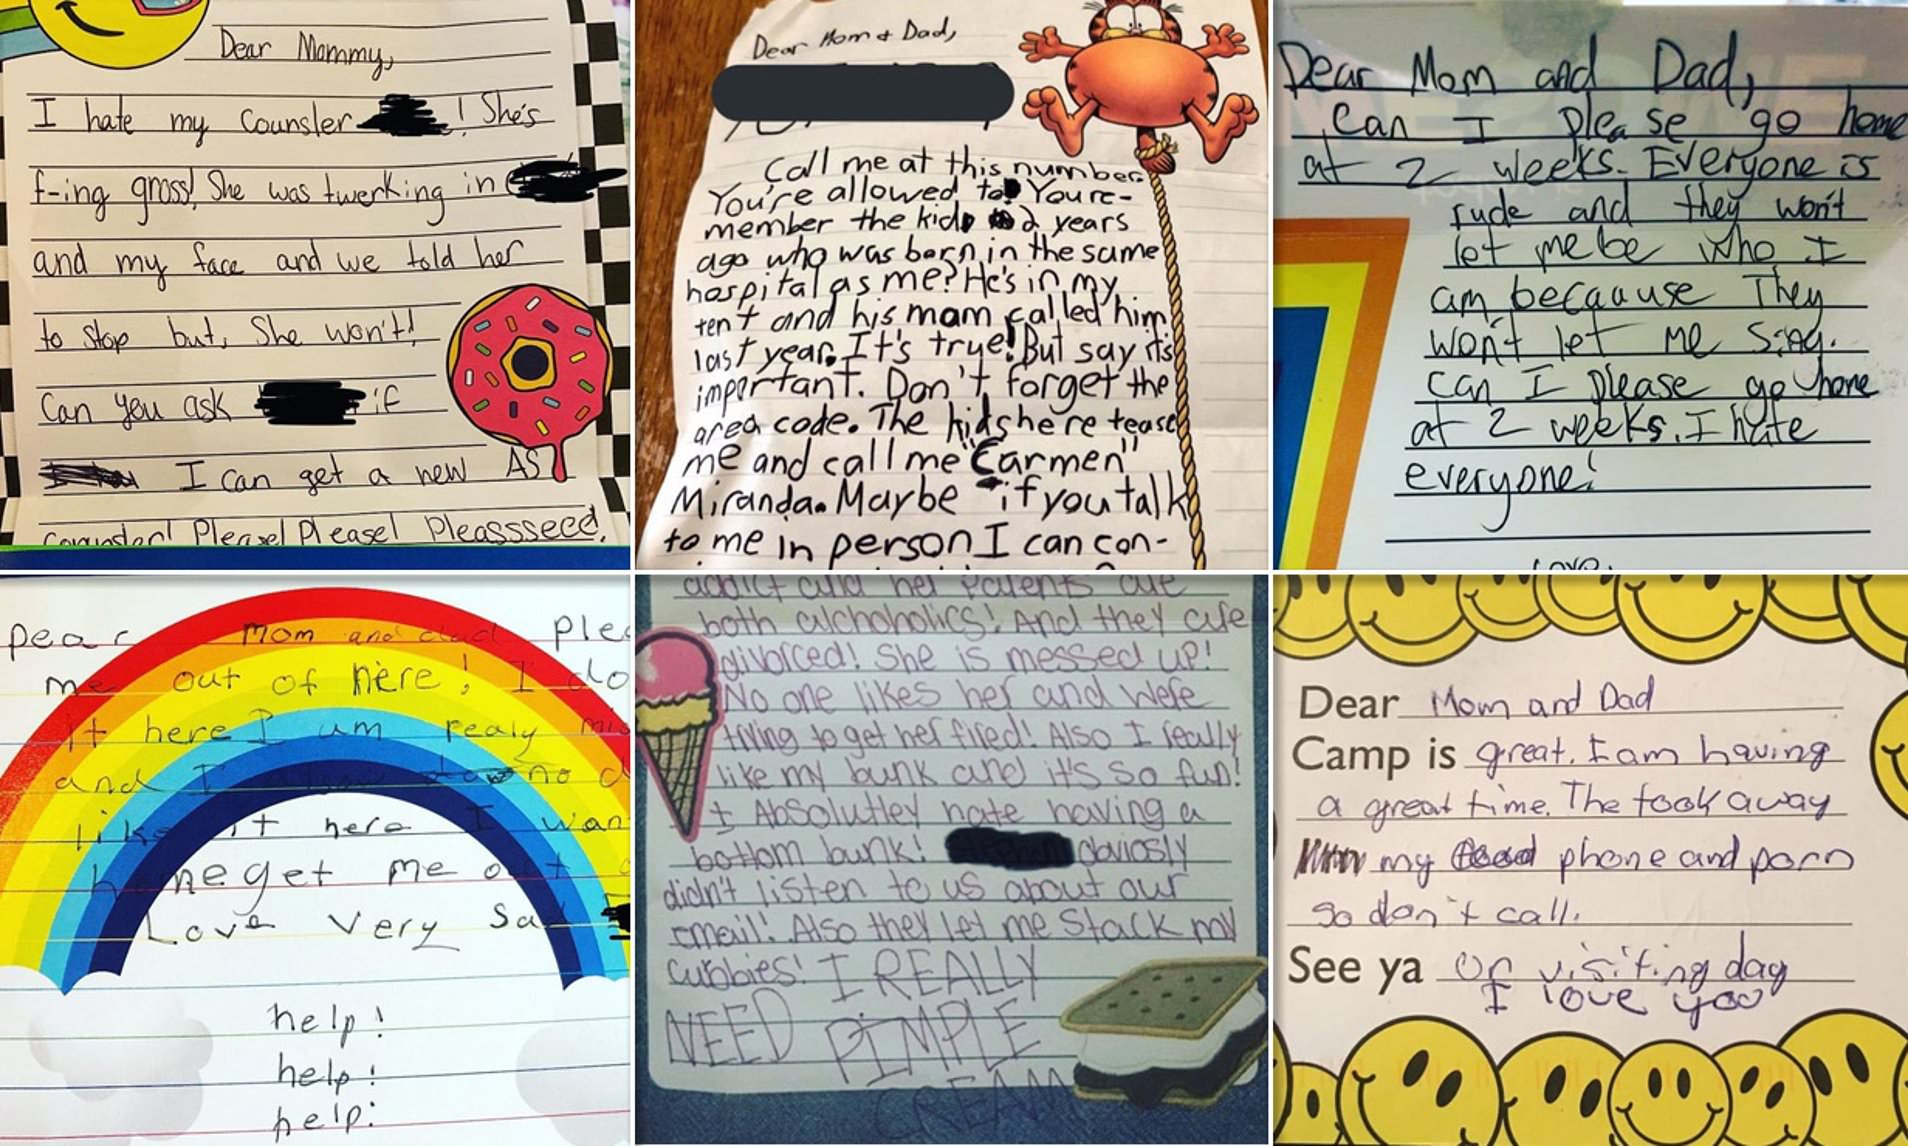 Dear Mommy,
I hate my Counsler ! She's
f-ing gross! She was twerking in
and my face and we told her
to stop but, She won't!
Can you ask if
I can get a new AS
Pleasel Pleasel Pleassseee,
Dear Mom & Dad,
Call me at this number.
You're allowed to! You re-
member the kid 2 years
ago who was born in the same
hospital as me? He's in my
tent and his mom called him
last year. It's true! But say it's
important. Don't forget the
area code. The kids here tease
me and call me "Carmen"
Miranda. Maybe if you talk
to me in person I can con-
Dear Mom and Dad,
Can I please go home
at 2 weeks. Everyone is
rude and they won't
let me be who I
am becauuse They
won't let me sing.
can I please go home
at 2 weeks. I hate
everyone!
Love,
Dear Mom and dad ple
me out of here! I do
it here I um realy mis
and I no d
like it here I wan
home get me out
Love Very Sad
help!
help!
help!
addict and her parents are
both alchoholics! And they are
divorced! She is messed up!
No one likes her and were
trying to get her fired! Also I really
like my bunk and it's so fun!
I Absolutley hate having a
bottom bunk! obviosly
didn't listen to us about our
email! Also they let me Stack my
cubbies! I REALLY
NEED PIMPLE
CREAM
Dear Mom and Dad
Camp is great. I am having
a great time. The took away
my phone and porn
so don't call.
See ya on visiting day
I love you